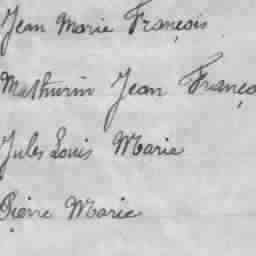 Jean Marie François
Mathurin Jean Franço
Jules Louis Marie
Pierre Marie